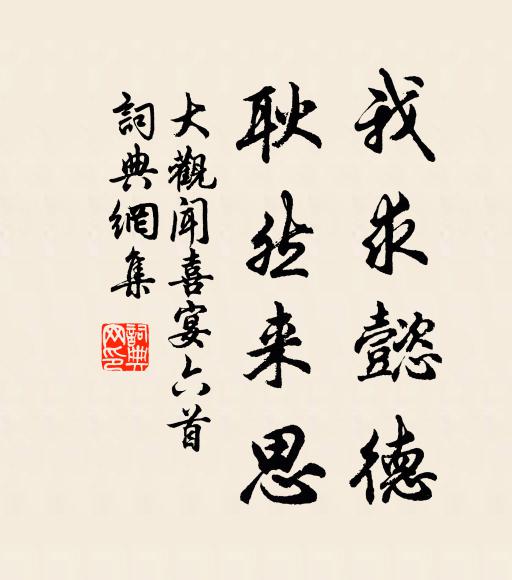 我求懿德
耿然来思
大觀闻喜宴六首
詞典網集
詞典网印